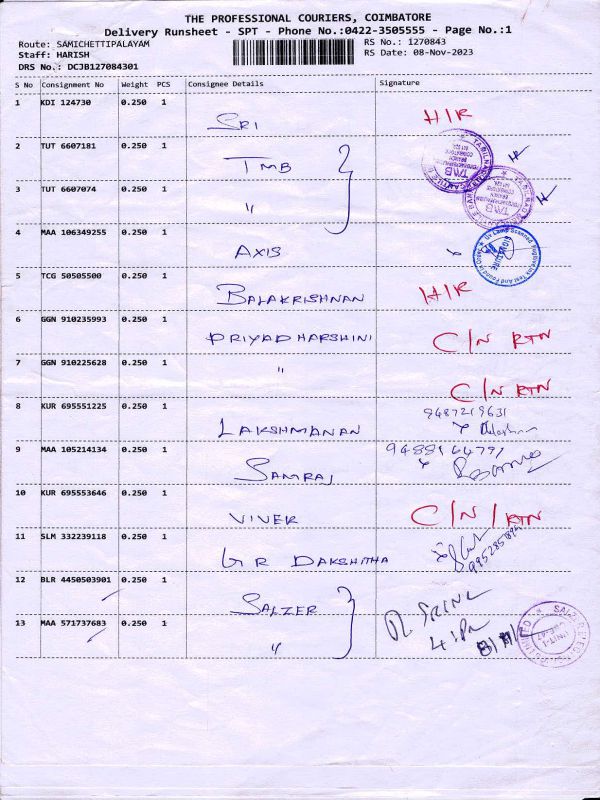 THE PROFESSIONAL COURIERS, COIMBATORE
Delivery Runsheet - SPT - Phone No.:0422-3505555 - Page No.:1
Route: SAMICHETTIPALAYAM
Staff: HARISH
DRS No.: DCJB127084301
RS No.: 1270843
RS Date: 08-Nov-2023
S No Consignment No Weight PCS Consignee Details Signature
1 KDI 124730 0.250 1 SRI H/R
2 TUT 6607181 0.250 1 TMB
3 TUT 6607074 0.250 1 "
4 MAA 106349255 0.250 1 AXIS
5 TCG 50505500 0.250 1 BALAKRISHNAN H/R
6 GGN 910235993 0.250 1 PRIYADHARSHINI C/N RTN
7 GGN 910225628 0.250 1 " C/N RTN
8 KUR 695551225 0.250 1 LAKSHMANAN 9487219631
9 MAA 105214134 0.250 1 SAMRAJ
10 KUR 695553646 0.250 1 VIVEK C/N / RTN
11 SLM 332239118 0.250 1 G R DAKSHITHA
12 BLR 4450503901 0.250 1 SALZER
13 MAA 571737683 0.250 1 "